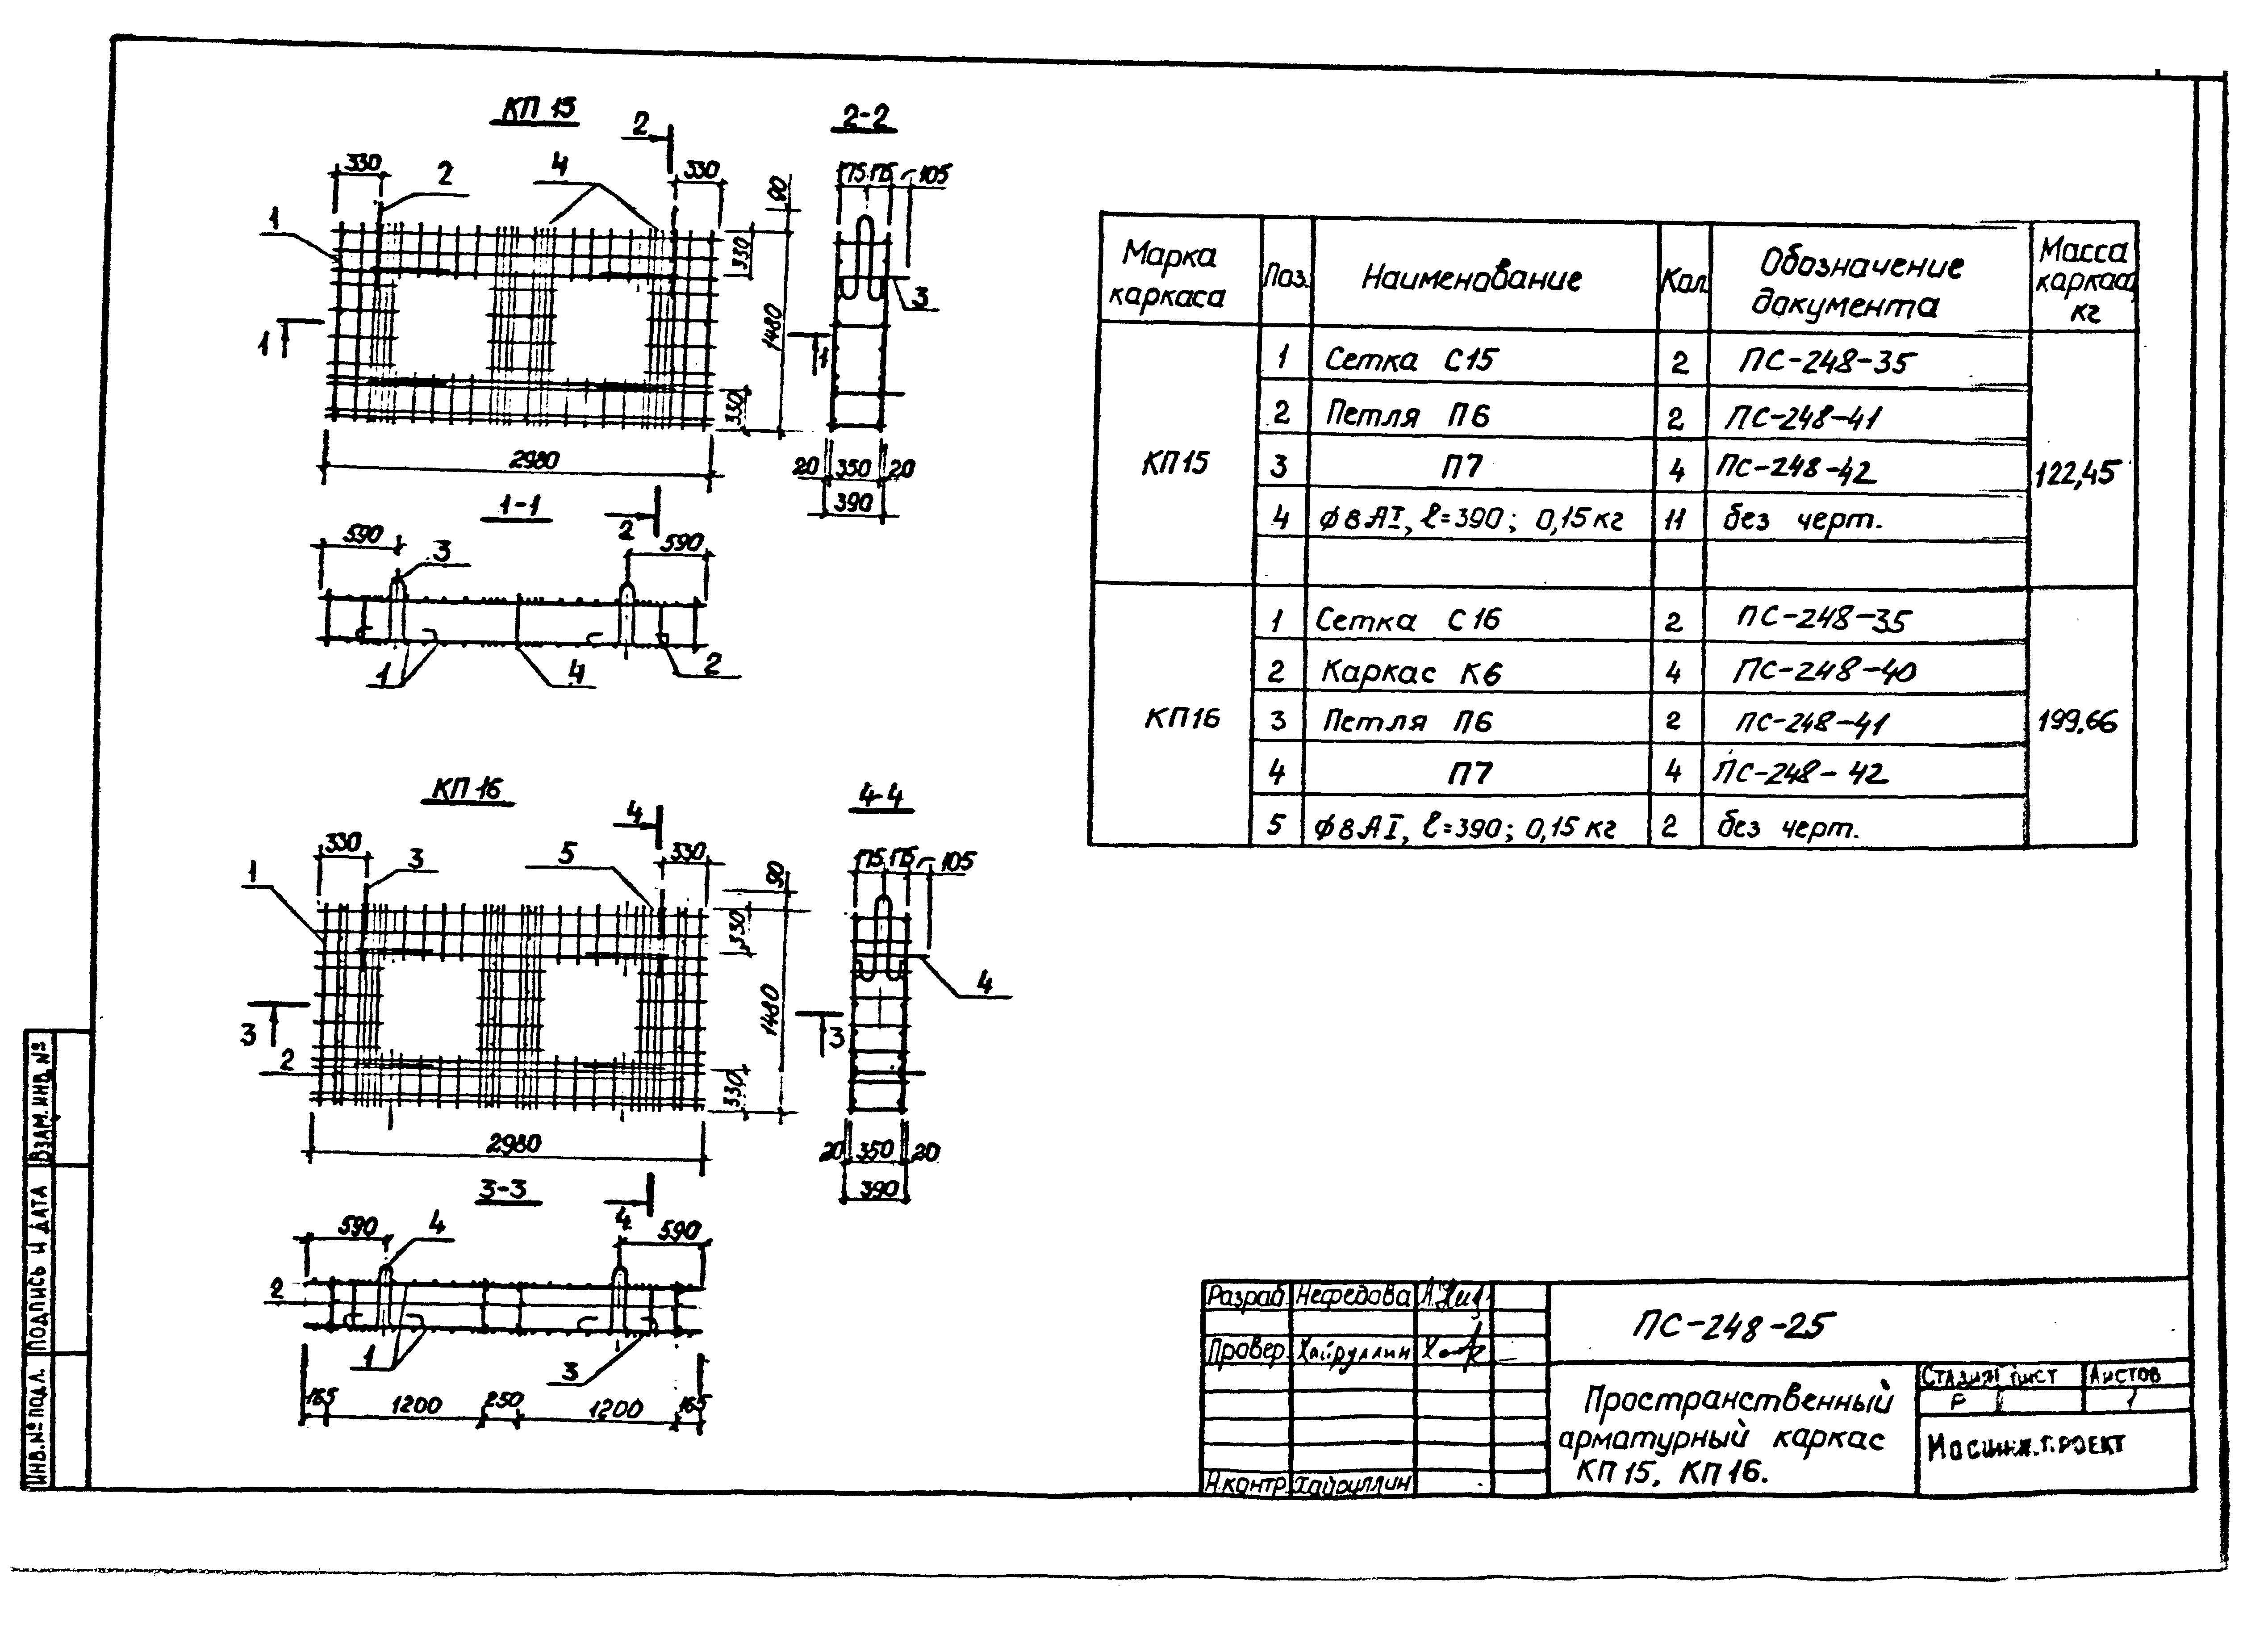 КП 15
2
2-2
330
2
4
330
90
175
175
105
1
330
3
1
1480
1
330
2980
20
350
20
390
1-1
2
590
3
590
1
4
2
КП 16
4
4-4
330
3
5
330
90
175
175
105
1
330
4
3
1480
3
2
330
2980
20
350
20
390
3-3
4
590
4
590
2
1
3
165
1200
250
1200
165
Марка каркаса
Поз.
Наименование
Кол.
Обозначение документа
Масса каркаса, кг
КП15
1 Сетка С15 2 ПС-248-35
2 Петля П6 2 ПС-248-41
3 П7 4 ПС-248-42
122,45
4 φ8АI, ℓ=390; 0,15кг 11 без черт.
КП16
1 Сетка С16 2 ПС-248-35
2 Каркас К6 4 ПС-248-40
3 Петля П6 2 ПС-248-41
199.66
4 П7 4 ПС-248-42
5 φ8АI, ℓ=390; 0,15кг 2 без черт.
ВЗАМ. ИНВ. №
ПОДПИСЬ И ДАТА
ИНВ. № ПОДЛ.
Разраб. Нефедова
Провер. Хайруллин
Н.контр. Хайруллин
ПС-248-25
Пространственный
арматурный каркас
КП 15, КП 16.
Стадия Лист Листов
Р 1
Мосинж.проект